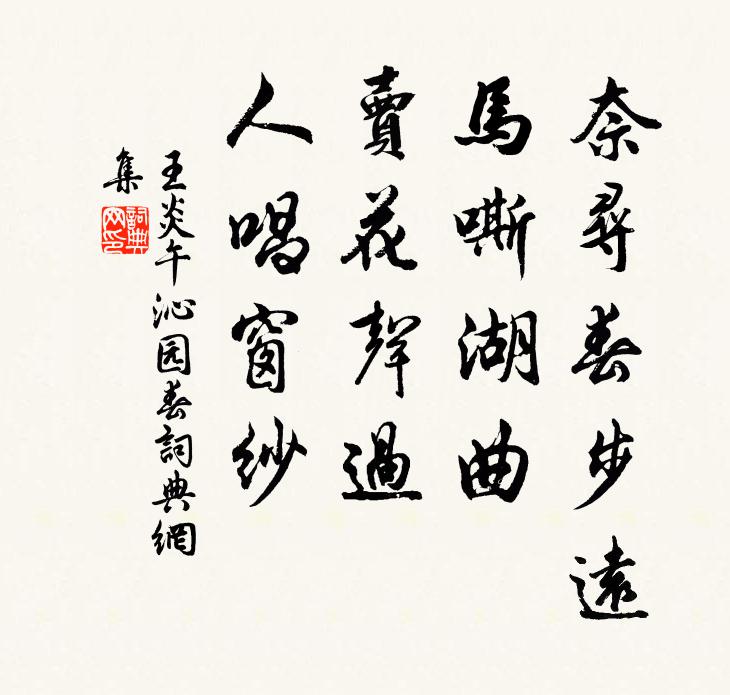 奈尋春步遠
馬嘶湖曲
賣花聲過
人唱窗紗
王炎午沁园春詞典網
集
詞典
网印